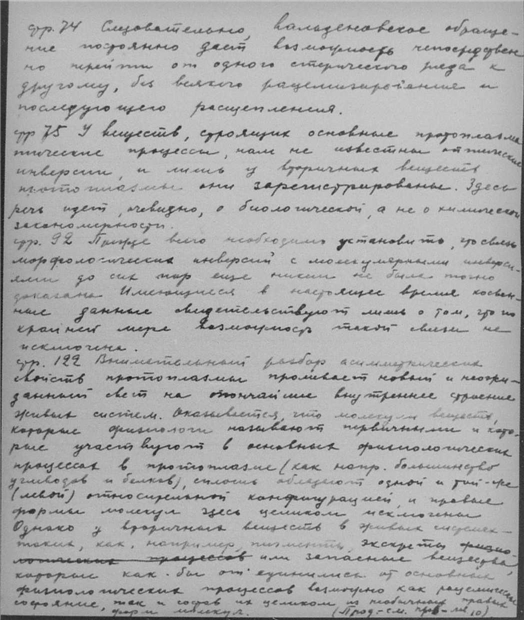 стр. 74 Следовательно, вальденовское обраще-
ние постоянно дает возможность непосредствен
но перейти от одного стерического ряда к
другому, без всякого рацемизирования и
последующего расщепления.
стр 75 У веществ, строящих основные протоплазма
тические процессы, нам не известны оптические
инверсии, и лишь у вторичных веществ
протоплазмы они зарегистрированы. Здесь
речь идет, очевидно, о биологической, а не о химической
закономерности.
стр. 92 Прежде всего необходимо установить, что связь
морфологических инверсий с молекулярными инверси-
ями до сих пор еще никем не была точно
доказана Имеющиеся в настоящее время косвен-
ные данные свидетельствуют лишь о том, что по
крайней мере возможность такой связи не
исключена.
стр. 122 Внимательный разбор асимметрических
свойств протоплазмы проливает новый и неожи-
данный свет на тончайшее внутреннее строение
живых систем. Оказывается, что молекулы веществ,
которые физиологи называют первичными и кото-
рые участвуют в основных физиологических
процессах в протоплазме (как напр. большинство
углеводов и белков), сплошь обладают одной и той-же
(левой) относительной конфигурацией, и правые
формы молекул здесь целиком исключены
Однако у вторичных веществ в живых системах-
таких, как, например, пигменты, экскреты физио-
логических процессов или запасные вещества,
которые как бы от'единились от основных
физиологических процессов возможно как рацемическое
состояние, так и состав их целиком из необычных правых
форм молекул. (Прод-см. прив-ие 10).